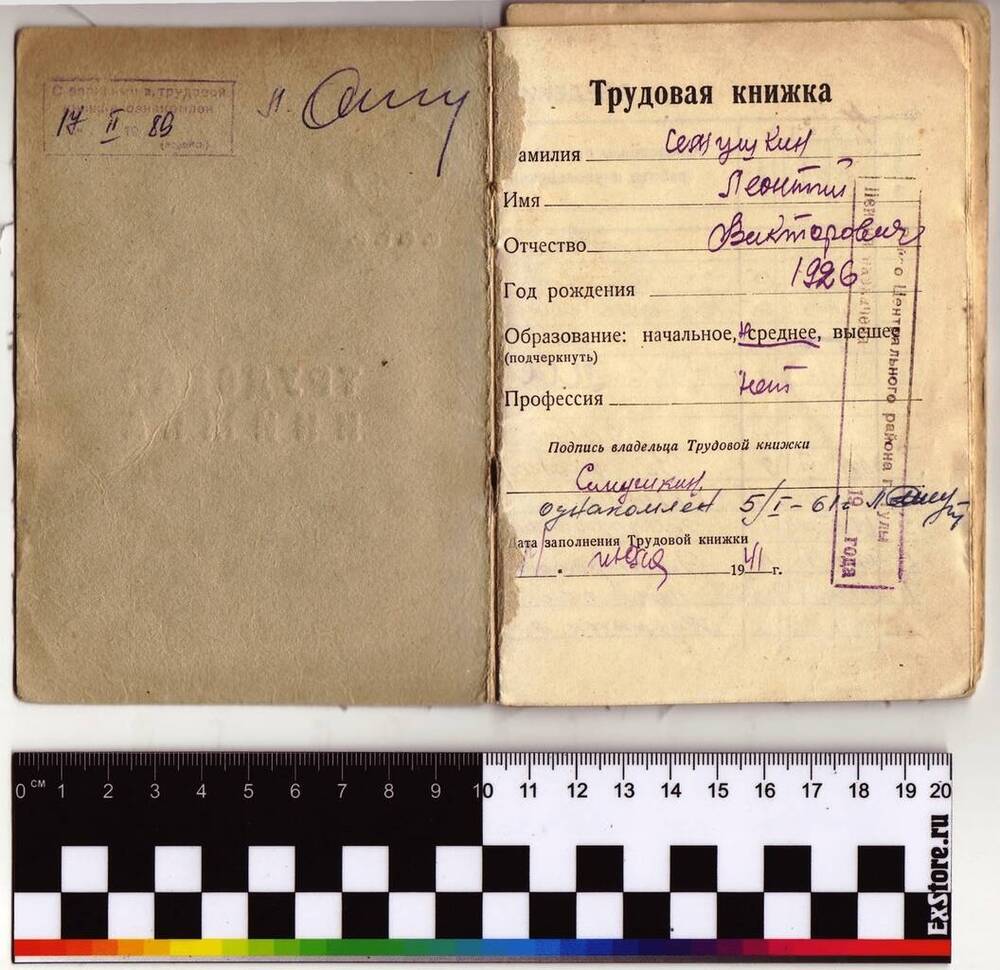 С записями в трудовой
книжке ознакомлен
17 II 1989
(подпись)
Трудовая книжка
Фамилия Семушкин
Имя Леонтий
Отчество Викторович
Год рождения 1926
Образование: начальное, н/среднее, высшее
(подчеркнуть)
Профессия нет
Подпись владельца Трудовой книжки
Семушкин
ознакомлен 5/I-61г
Дата заполнения Трудовой книжки
июля 1941 г.
Пенсия назначена
Центрального района г. Тулы
19 года
0 см 1 2 3 4 5 6 7 8 9 10 11 12 13 14 15 16 17 18 19 20
ExStore.ru